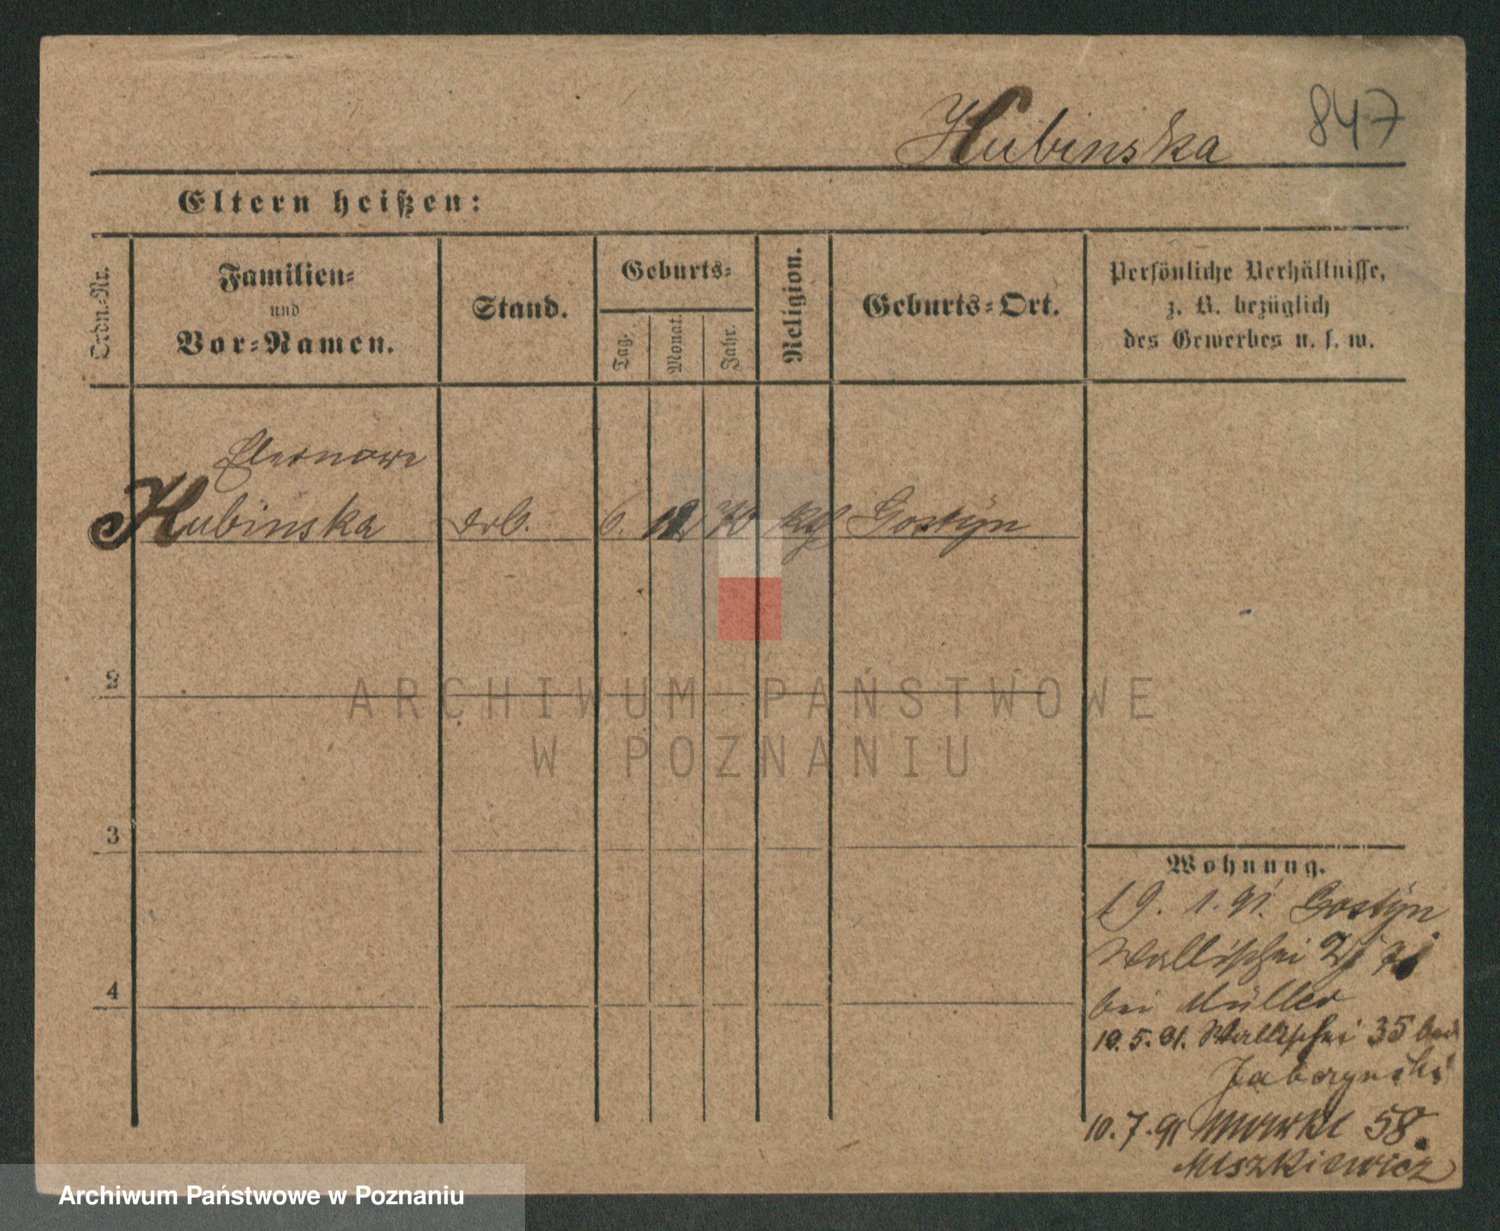 Hubinska 847
Eltern heißen:
Ordn.-Nr.
Familien-
und
Vor-Namen.
Stand.
Geburts-
Tag.
Monat.
Jahr.
Religion.
Geburts-Ort.
Persönliche Verhältnisse,
z. B. bezüglich
des Gewerbes u. s. w.
Eleonore
Hubinska Arb. 6. 12 70 kth Gostÿn
2
3
4
Wohnung.
19. 1. 91. Gostÿn
Wallischei
bei Müller
19. 5. 91. Wallischei 35 bei
Jabczynski
10. 7. 91 Markt 58.
Miszkiewicz
ARCHIWUM PAŃSTWOWE
W POZNANIU
Archiwum Państwowe w Poznaniu